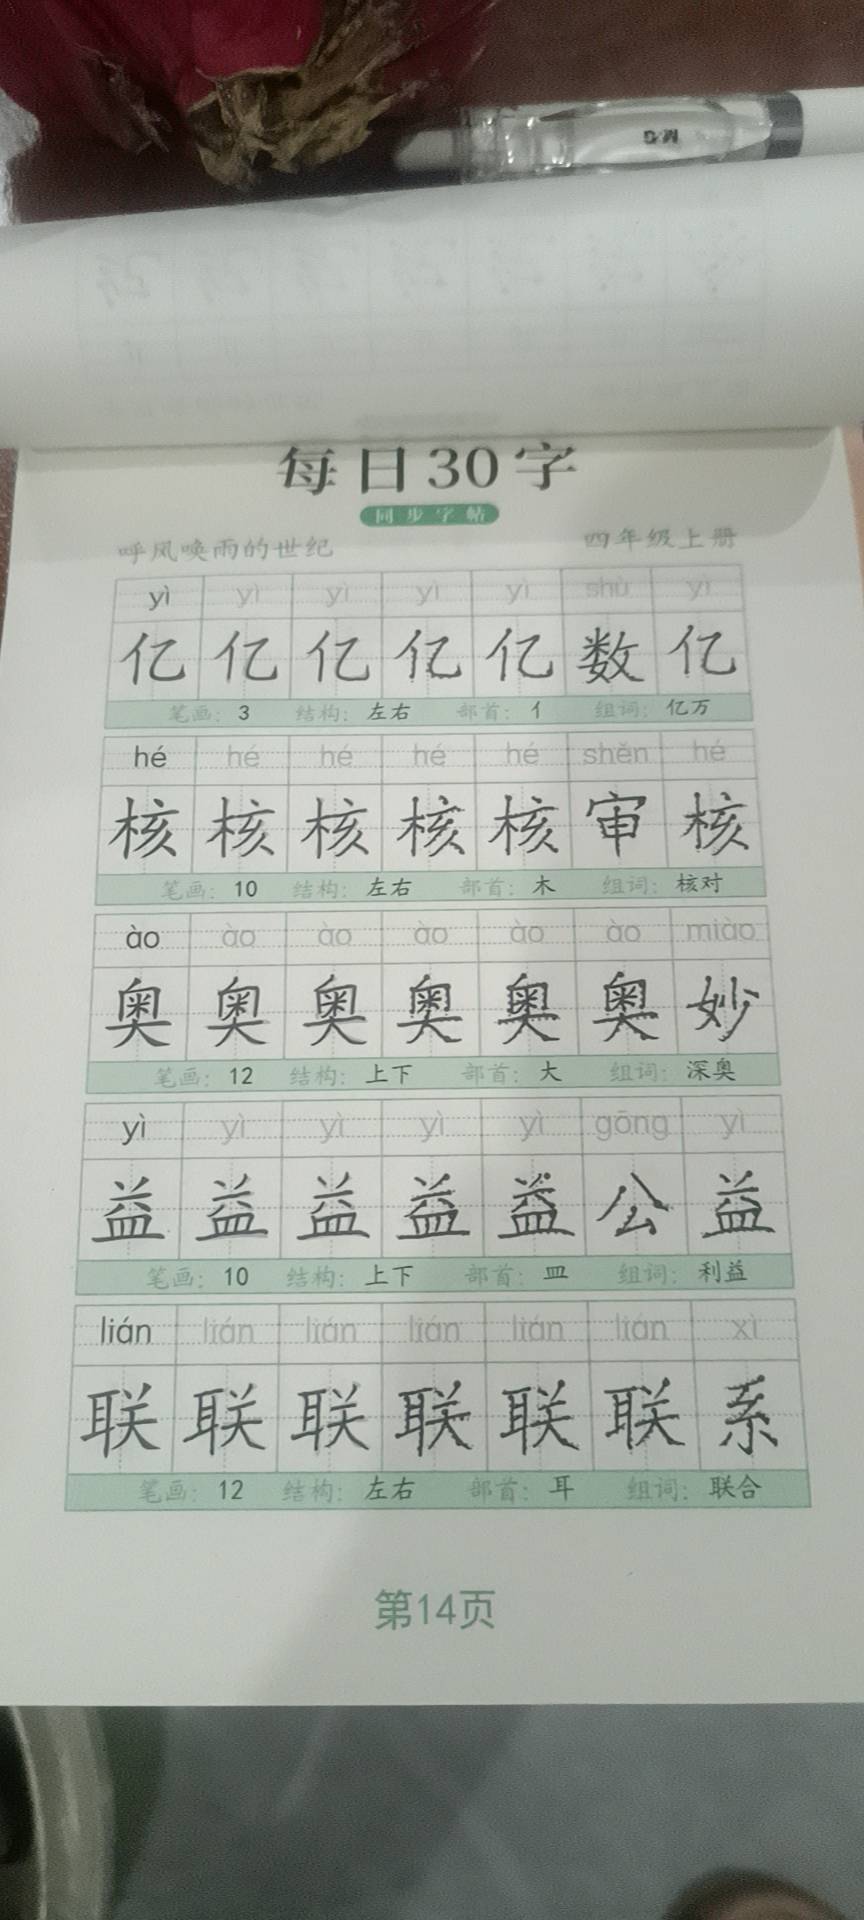 M&G
每日30字
同步字帖
呼风唤雨的世纪 四年级上册
yì yì yì yì yì shù yì
亿 亿 亿 亿 亿 数 亿
笔画：3 结构：左右 部首：亻 组词：亿万
hé hé hé hé hé shěn hé
核 核 核 核 核 审 核
笔画：10 结构：左右 部首：木 组词：核对
ào ào ào ào ào ào miào
奥 奥 奥 奥 奥 奥 妙
笔画：12 结构：上下 部首：大 组词：深奥
yì yì yì yì yì gōng yì
益 益 益 益 益 公 益
笔画：10 结构：上下 部首：皿 组词：利益
lián lián lián lián lián lián xì
联 联 联 联 联 联 系
笔画：12 结构：左右 部首：耳 组词：联合
第14页